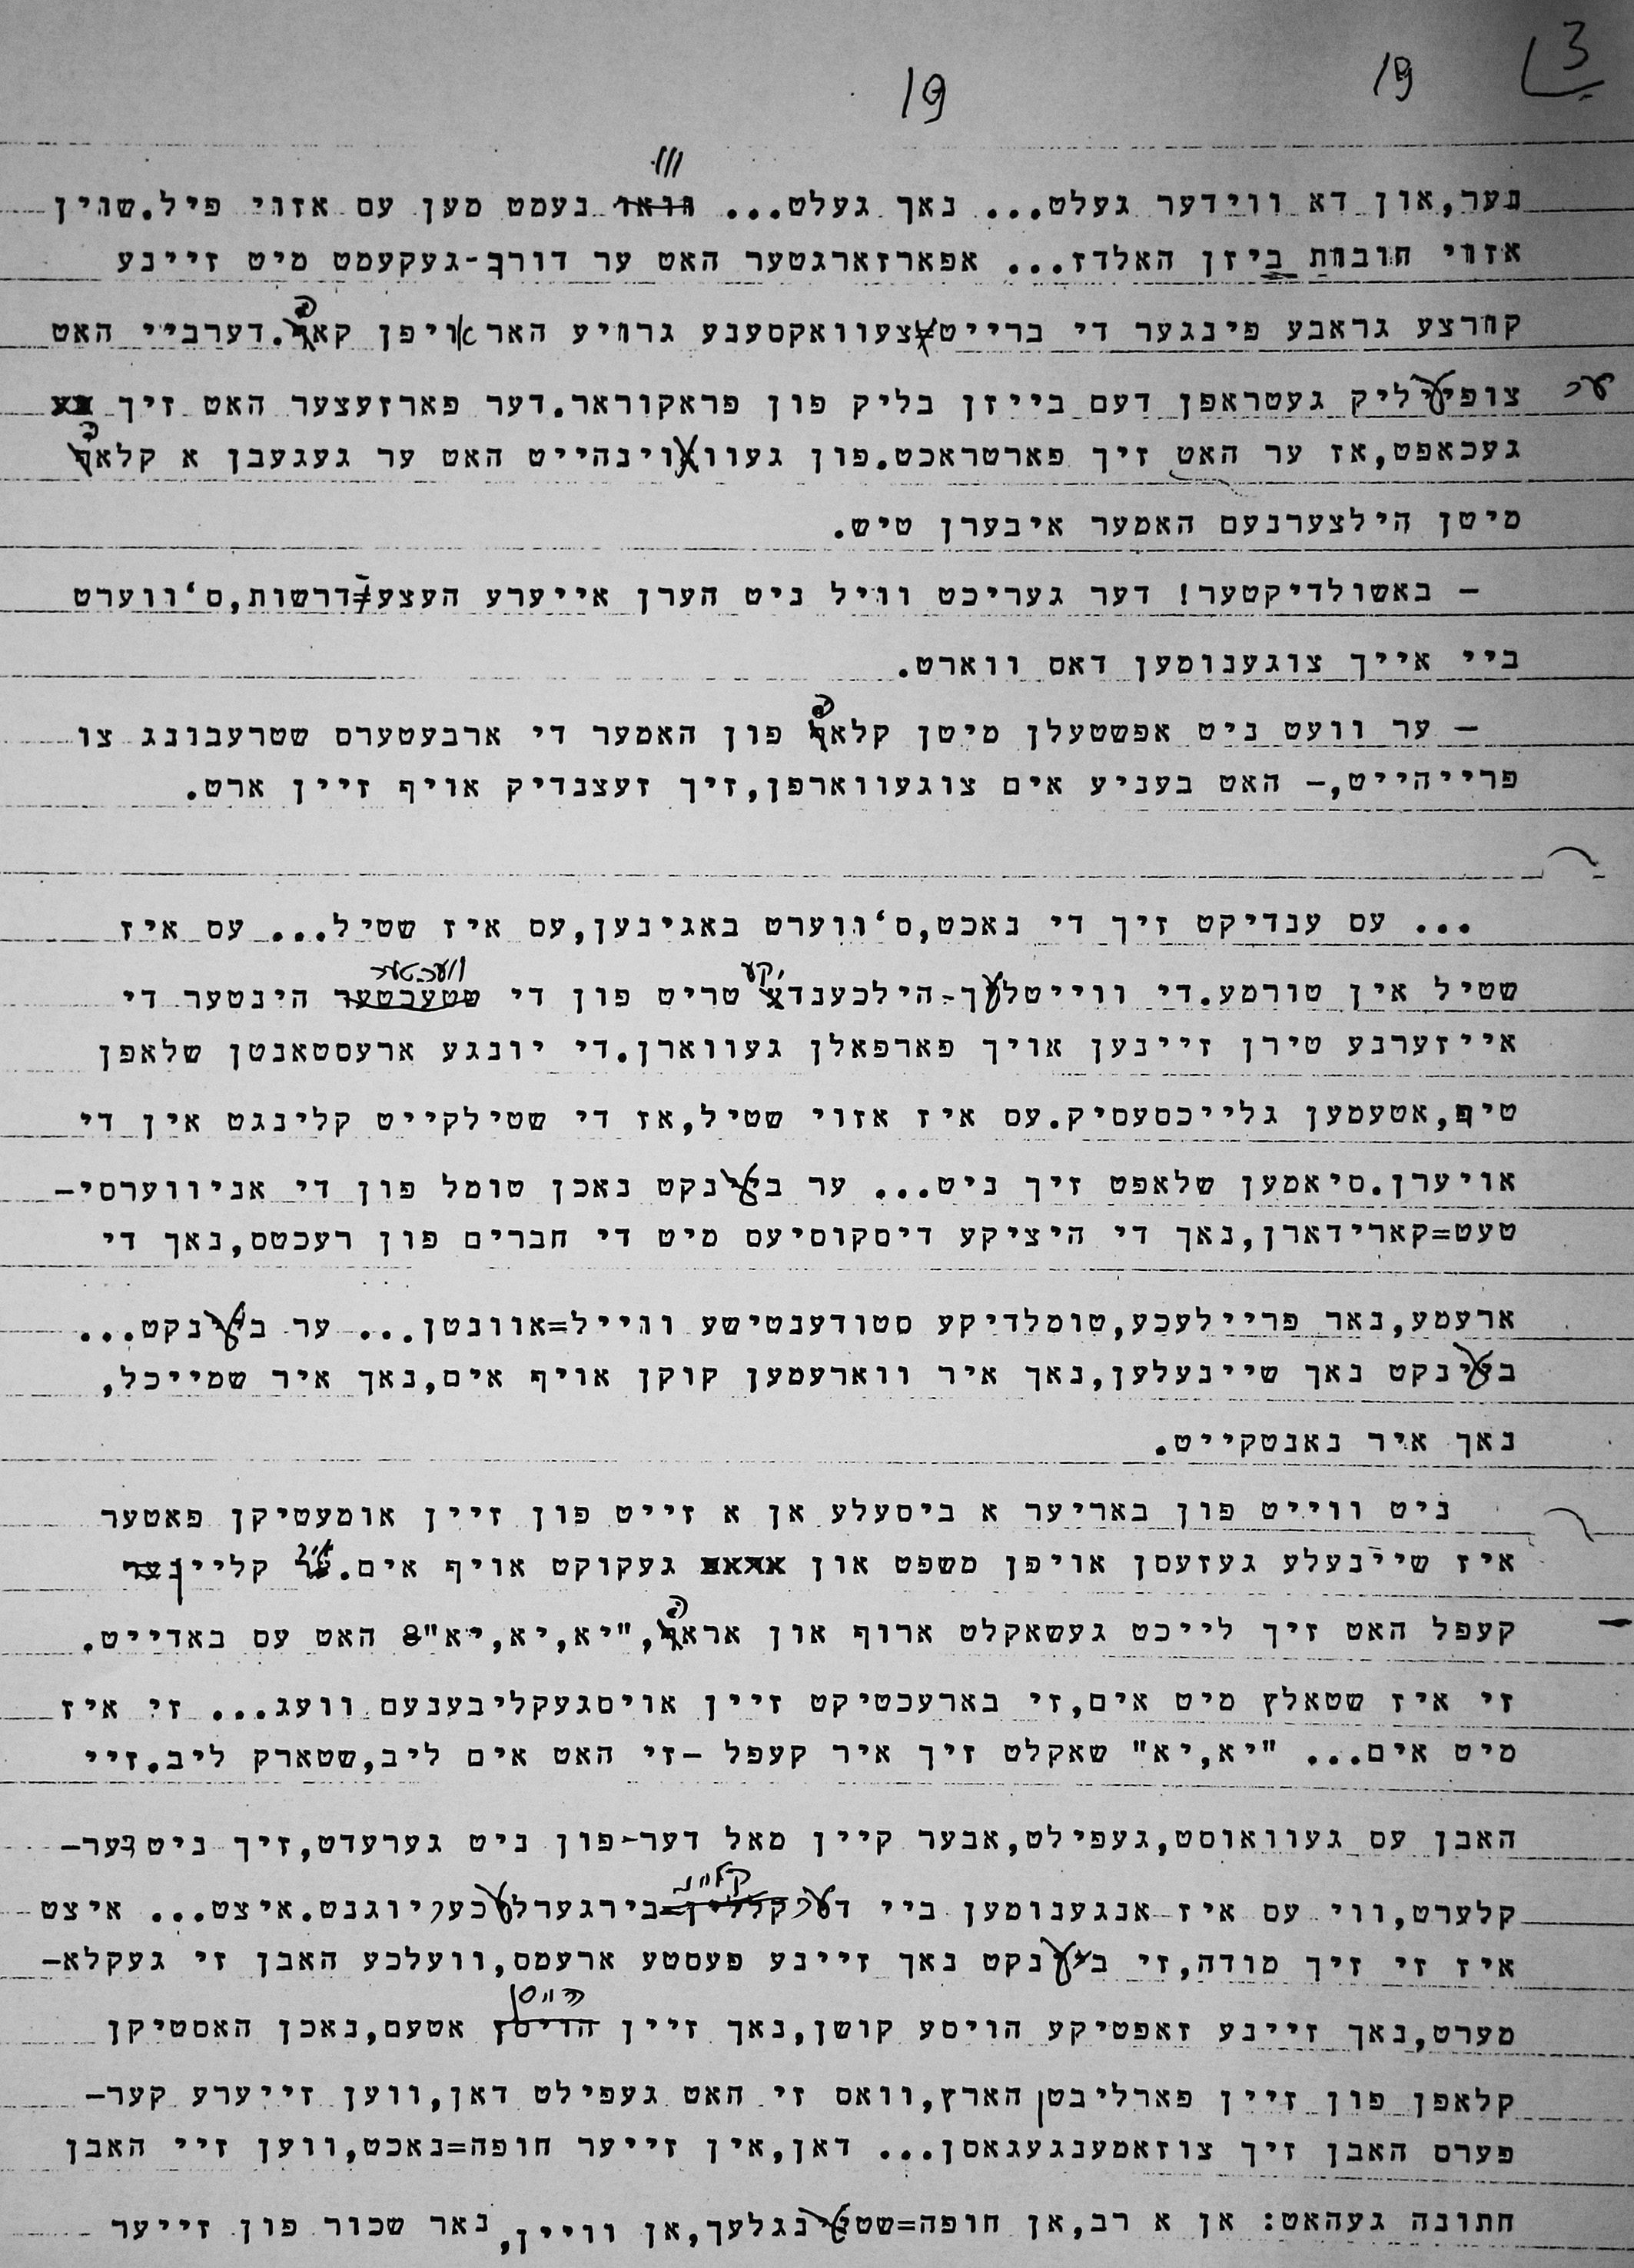 19 19 3
נער,און דא ווידער געלט... נאך געלט... וואו נעמט מען עס אזוי פיל.שוין
אזוי חובות ביזן האלדז... אפארזארגטער האט ער דורך-געקעמט מיט זיינע
קורצע גראבע פינגער די ברייט צעוואקסענע גרויע האר אויפן קאפ.דערביי האט
צופעליק געטראפן דעם בייזן בליק פון פראקוראר.דער פארזעצער האט זיך
געכאפט,אז ער האט זיך פארטראכט.פון געוווינהייט האט ער געגעבן א קלאפ
מיטן הילצערנעם האמער איבערן טיש.
– באשולדיקטער! דער געריכט וויל ניט הערן אייערע העצע-דרשות,ס'ווערט
ביי אייך צוגענומען דאס ווארט.
– ער וועט ניט אפשטעלן מיטן קלאפ פון האמער די ארבעטערס שטרעבונג צו
פרייהייט,– האט בעניע אים צוגעווארפן,זיך זעצנדיק אויף זיין ארט.
... עס ענדיקט זיך די נאכט,ס'ווערט באגינען,עס איז שטיל... עס איז
שטיל אין טורמע.די ווייטלעך-הילכענדיקע טריט פון די וועכטער הינטער די
אייזערנע טירן זיינען אויך פארפאלן געווארן.די יונגע ארעסטאנטן שלאפן
טיפ,אטעמען גלייכמעסיק.עס איז אזוי שטיל,אז די שטילקייט קלינגט אין די
אויערן.סיאמען שלאפט זיך ניט... ער בענקט נאכן טומל פון די אניווערסי–
טעט=קארידארן,נאך די היציקע דיסקוסיעס מיט די חברים פון רעכטס,נאך די
ארעמע,נאר פריילעכע,טומלדיקע סטודענטישע ווייל=אוונטן... ער בענקט...
בענקט נאך שיינעלען,נאך איר ווארעמען קוקן אויף אים,נאך איר שמייכל,
נאך איר נאנטקייט.
ניט ווייט פון באריער א ביסעלע אן א זייט פון זיין אומעטיקן פאטער
איז שיינעלע געזעסן אויפן משפט און געקוקט אויף אים.איר קליין
קעפל האט זיך לייכט געשאקלט ארוף און אראפ,"יא,יא,יא"8 האט עס באדייט.
זי איז שטאלץ מיט אים,זי בארעכטיקט זיין אויסגעקליבענעם וועג... זי איז
מיט אים... "יא,יא" שאקלט זיך איר קעפל –זי האט אים ליב,שטארק ליב.זיי
האבן עס געוואוסט,געפילט,אבער קיין מאל דער-פון ניט גערעדט,זיך ניט דער–
קלערט,ווי עס איז אנגענומען ביי דער קליינ בירגערלעכער יוגנט.איצט... איצט
איז זי זיך מודה,זי בענקט נאך זיינע פעסטע ארעמס,וועלכע האבן זי געקלא–
מערט,נאך זיינע זאפטיקע הויסע קושן,נאך זיין הייסן אטעם,נאכן האסטיקן
קלאפן פון זיין פארליבטן הארץ,וואס זי האט געפילט דאן,ווען זייערע קער–
פערס האבן זיך צוזאמענגעגאסן... דאן,אין זייער חופה=נאכט,ווען זיי האבן
חתונה געהאט: אן א רב,אן חופה=שטענגלעך,אן וויין,נאר שכור פון זייער